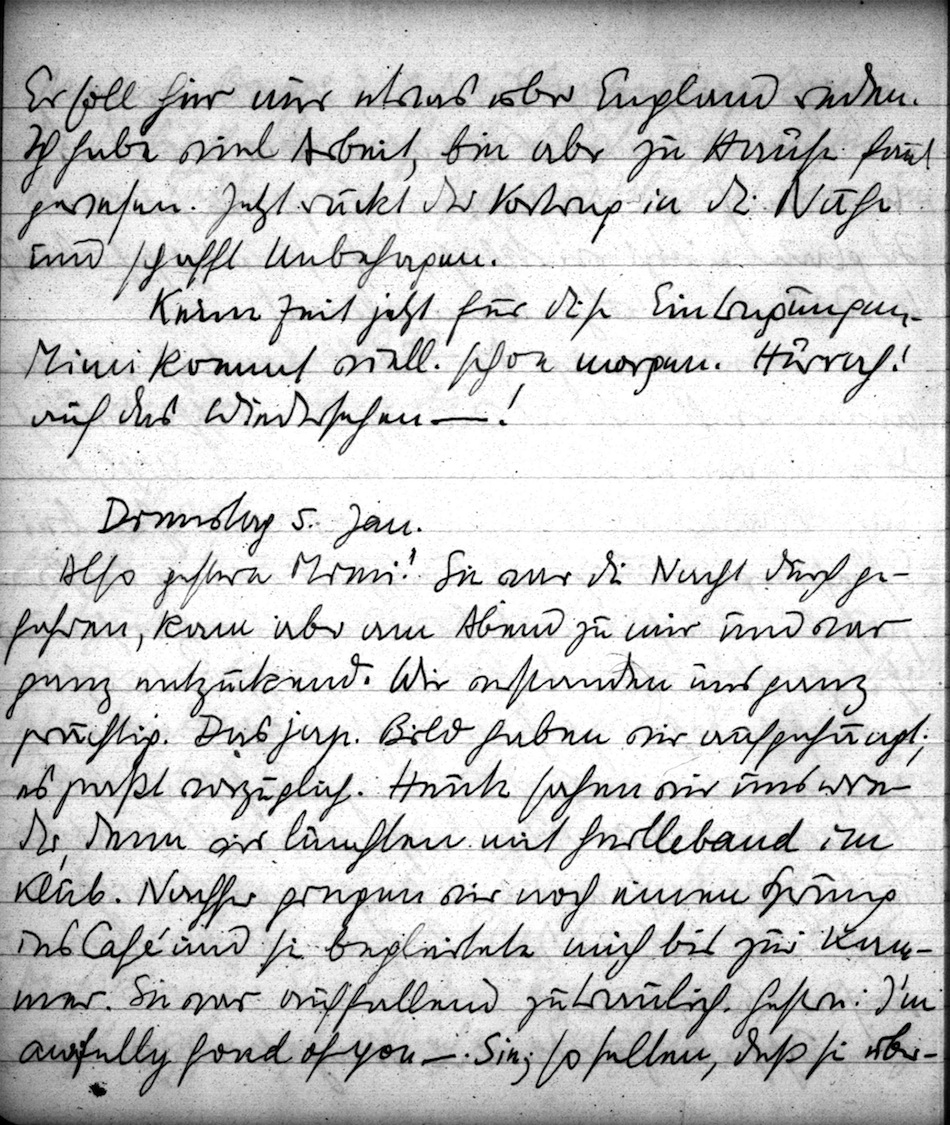 Er soll hier über England reden.
Ich habe viel Arbeit, bin aber zu Hause faul
gewesen. Jetzt rückt der Vortrag in die Nähe
und schafft Unbehagen.
Keine Zeit jetzt für diese Eintragungen,
Mimi kommt viell. schon morgen. Hurrah!
auf das Wiedersehen—!
Dienstag 5. Jan.
Also gestern Mimi! Sie war die Nacht durch ge-
fahren, kam aber am Abend zu mir und war
ganz entzückend. Wir verstanden uns ganz
prächtig. Das jap. Bild haben wir aufgehängt;
es paßt vorzüglich. Heute sahen wir uns wie-
der, denn wir lunchten mit Halleband im
Klub. Nachher gingen wir noch einen Sprung
ins Café und sie begleitete mich bis zur Kam-
mer. Sie war auffallend zutraulich. Gestern: I'm
awfully fond of you—. Sie, so selten, daß sie über-